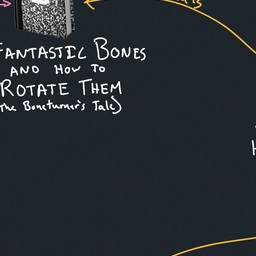 FANTASTIC BONES
AND HOW TO
ROTATE THEM
(The Boneturner's Tale)